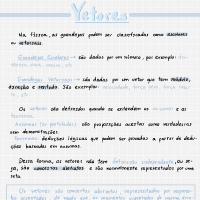 Vetores
Na física, as grandezas podem ser classificadas como escalares
ou vetoriais.
Grandezas Escalares → são dados por um número, por exemplo:
Grandezas Vetoriais → são dadas por um vetor que tem módulo,
direção e sentido. São exemplos: velocidade, força
Os vetores são definidos quando se entendem os axiomas e os
teoremas.
Axiomas (ou postulados) são proposições aceitas como verdadeiras
sem demonstrações.
Teoremas: deduções lógicas que podem ser provadas a partir de dedu-
ções baseadas em axiomas.
Dessa forma, os vetores não tem definição independente, ou se-
ja, são conceitos abstratos e são normalmente representados por uma
seta.
Os vetores são elementos abstratos, representados por segmen-
tos orientados, de modo que os segmentos orientados de mesmo